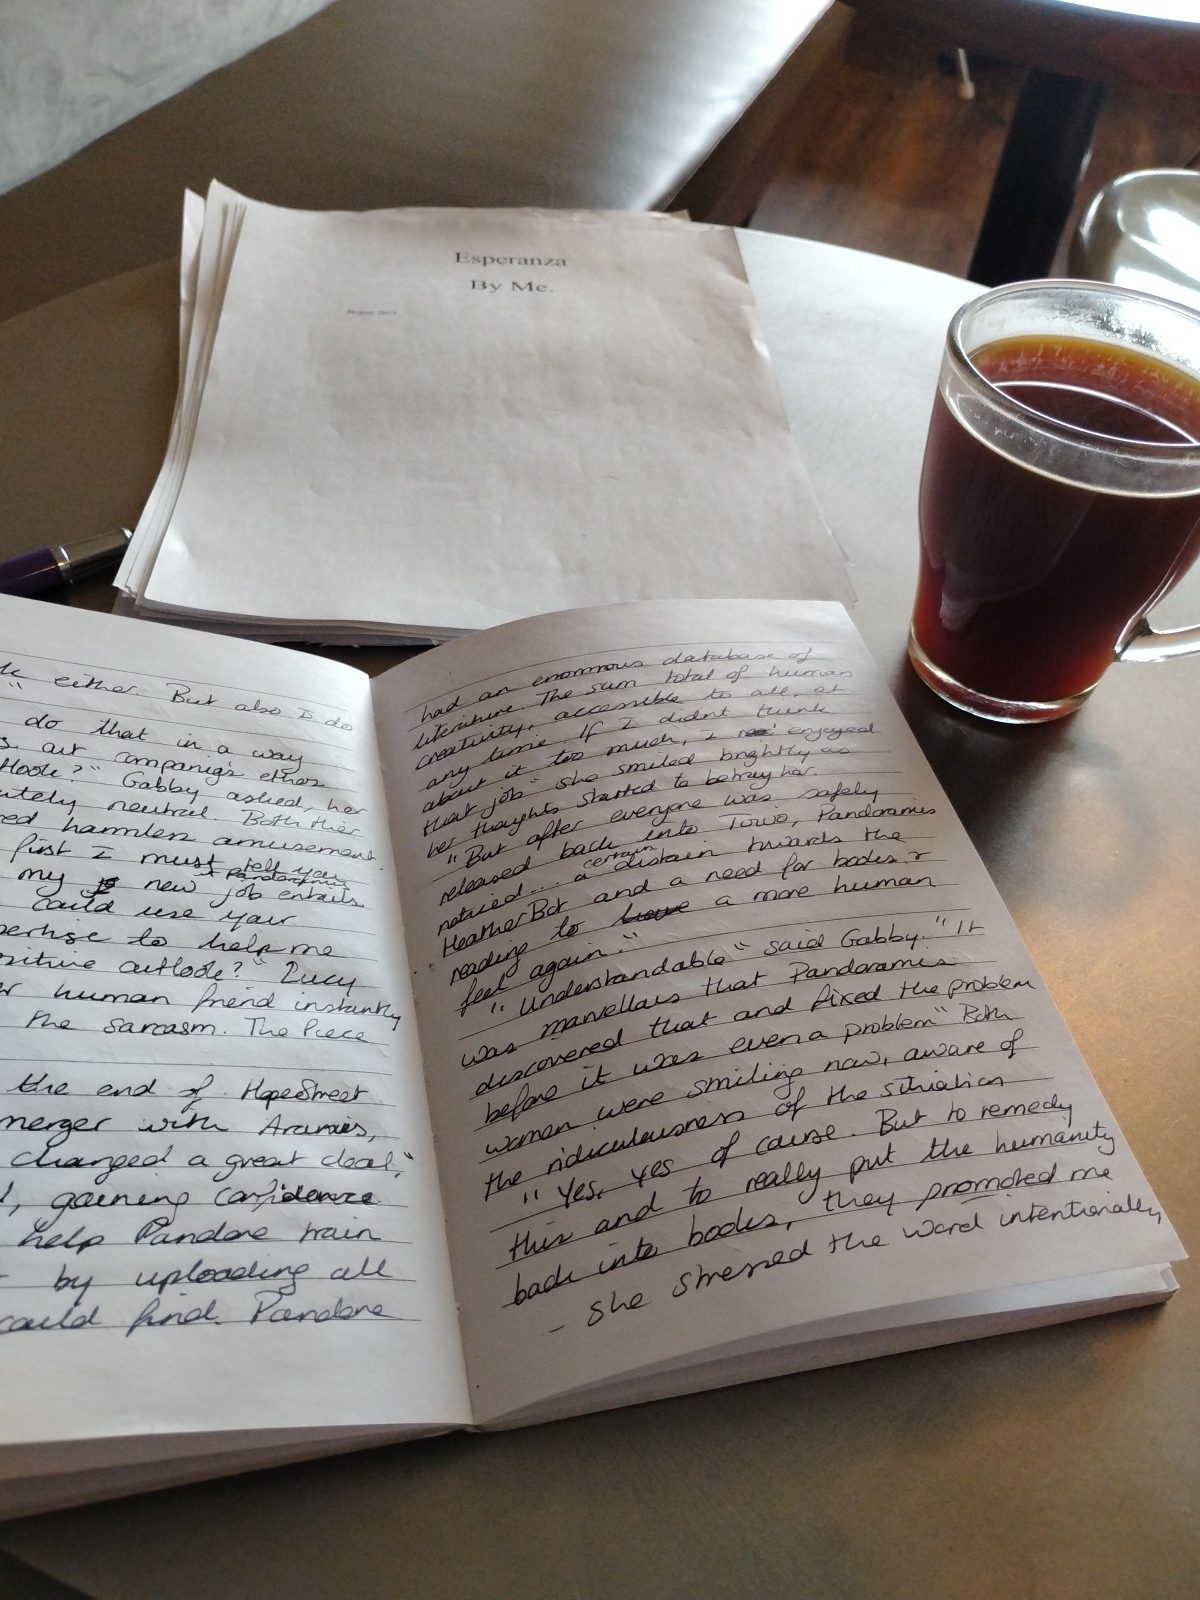 Esperanza
By Me.
either. But also I do
do that in a way
art company's ethos
?" Gabby asked, her
neutral. Both their
harmless amusement.
first I must tell you
my new job entails
could use your
to help me
outlook?" Lucy
human friend instantly
the sarcasm. The Piece
the end of HopeStreet
merger with Aramis,
changed a great deal,"
, gaining confidence
help Pandora train
by uploading all
could find. Pandora
had an enormous database of
literature. The sum total of human
creativity, accessible to all, at
any time. If I didn't think
about it too much, I enjoyed
that job" she smiled brightly as
her thoughts started to betray her.
"But after everyone was safely
released back into Tirio, Pandoramis
noticed... a certain distain towards the
HeatherBot and a need for bodies &
reading to have a more human
feel again."
"Understandable" said Gabby. "It
was marvellous that Pandoramis
discovered that and fixed the problem
before it was even a problem" Both
women were smiling now, aware of
the ridiculousness of the situation
"Yes, yes of course. But to remedy
this and to really put the humanity
back into books, they promoted me
- She stressed the word intentionally,